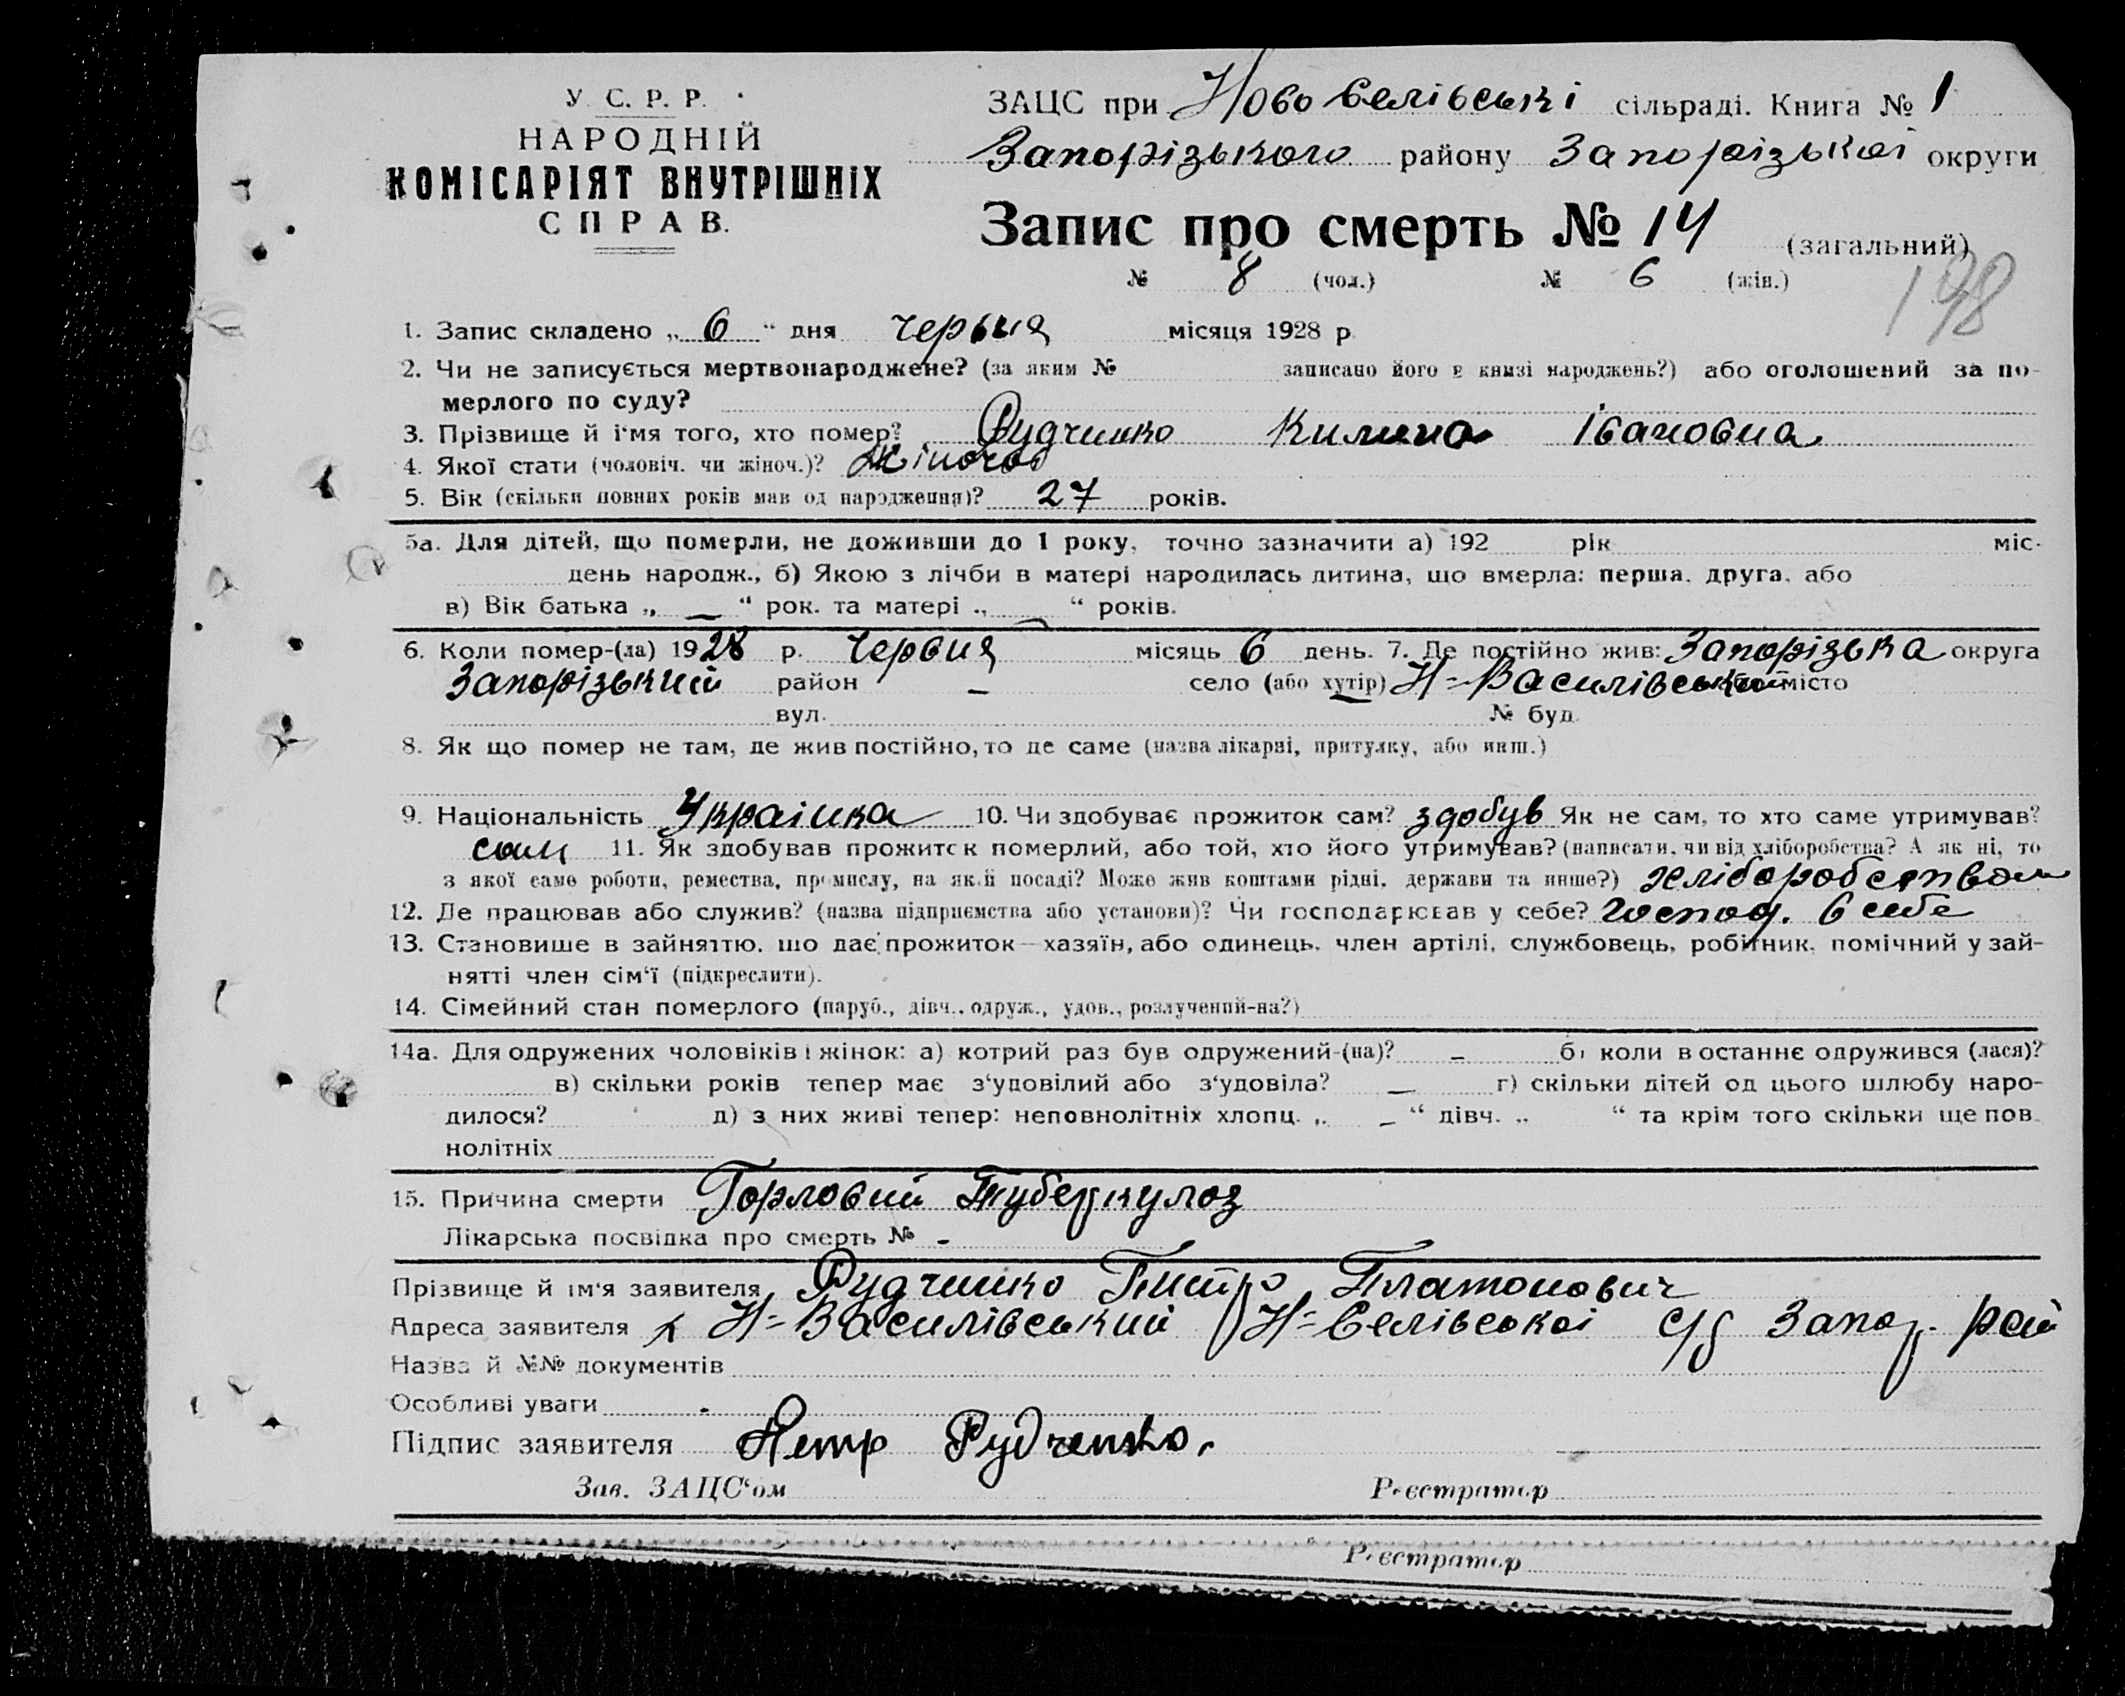 У. С. Р. Р.
НАРОДНІЙ
КОМІСАРІЯТ ВНУТРІШНІХ
СПРАВ.
ЗАЦС при Ново Селівські сільраді. Книга № 1
Запорізького району Запорізької округи
Запис про смерть № 14 (загальний)
№ 8 (чол.) № 6 (жін.)
198
1. Запис складено „ 6 “ дня червня місяця 1928 р.
2. Чи не записується мертвонароджене? (за яким № записано його в книзі народжень?) або оголошений за по-
мерлого по суду?
3. Прізвище й і‘мя того, хто помер? Рудченко Килина Івановна
4. Якої стати (чоловіч. чи жіноч.)? Жіночої
5. Вік (скільки повних років мав од народження)? 27 років.
5а. Для дітей, що померли, не доживши до 1 року, точно зазначити а) 192 рік міс.
день народж., б) Якою з лічби в матері народилась дитина, що вмерла: перша, друга, або
в) Вік батька „ — “ рок. та матері „ — “ років.
6. Коли помер-(ла) 1928 р. Червня місяць 6 день. 7. Де постійно жив: Запорізька округа
Запорізький район — село (або хутір) Н=Василівський місто
вул. № буд.
8. Як що помер не там, де жив постійно, то де саме (назва лікарні, притулку, або инш.)
9. Національність Українка 10. Чи здобуває прожиток сам? здобув Як не сам, то хто саме утримував?
сам 11. Як здобував прожиток померлий, або той, хто його утримував? (написати, чи від хліборобства? А як ні, то
з якої саме роботи, ремества, промислу, на якій посаді? Може жив коштами рідні, держави та инше?) хліборобством
12. Де працював або служив? (назва підприємства або установи)? Чи господарював у себе? господ. в себе
13. Становище в зайняттю, що дає прожиток—хазяїн, або одинець, член артілі, службовець, робітник, помічний у зай-
нятті член сім‘ї (підкреслити).
14. Сімейний стан померлого (паруб., дівч., одруж., удов., розлучений-на?)
14а. Для одружених чоловіків і жінок: а) котрий раз був одружений-(на)? — б) коли в останнє одружився (лася)?
в) скільки років тепер має з‘удовілий або з‘удовіла? — г) скільки дітей од цього шлюбу наро-
дилося? д) з них живі тепер: неповнолітніх хлопц. „ — “ дівч. „ “ та крім того скільки ще пов-
нолітніх
15. Причина смерти Горловий Туберкулоз
Лікарська посвідка про смерть № -
Прізвище й ім‘я заявителя Рудченко Питро Платонович
Адреса заявителя х Н=Василівський Н=Селівської с/р Запор. рай
Назва й №№ документів
Особливі уваги -
Підпис заявителя Петр Рудченко.
Зав. ЗАЦС‘ом Реєстратор
Реєстратор